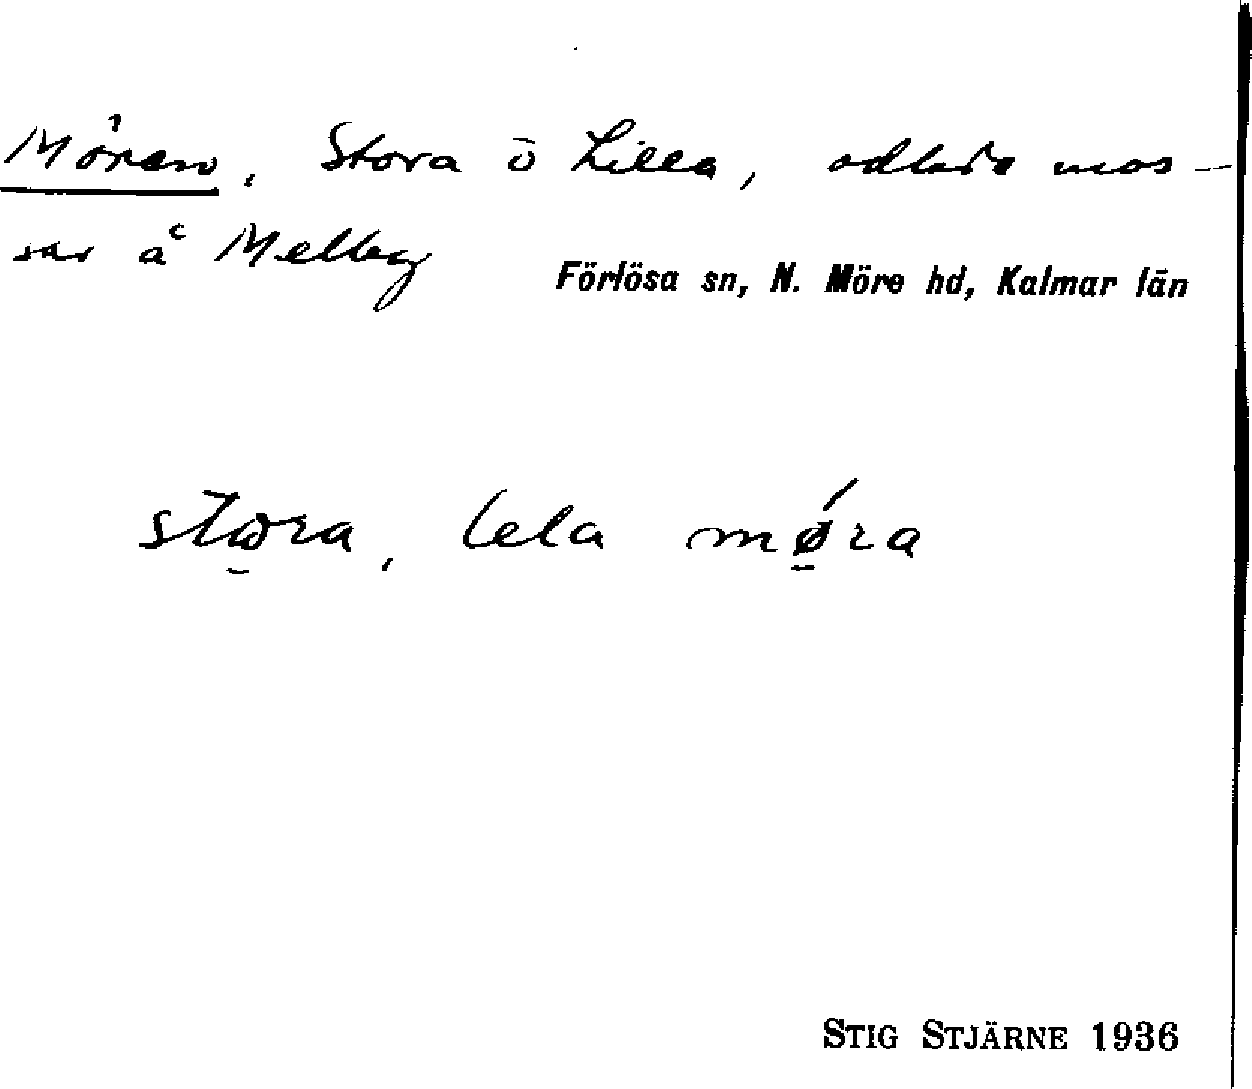 Mören, Stora o Lilla, odlade mos-
sar å Melleby
Förlösa sn, N. Möre hd, Kalmar län
stora, lela møra
STIG STJÄRNE 1936